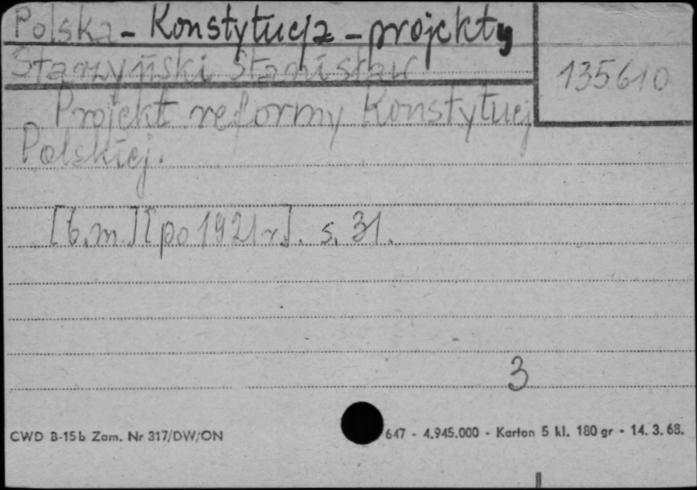 Polska - Konstytucja - projekty
Starzyński Stanisław
135610
Projekt reformy Konstytucj
Polskiej.
[b.m.] [po 1921 r.]. s. 31.
3
CWD B-15b Zam. Nr 317/DW/ON
647 - 4.945.000 - Karton 5 kl. 180 gr - 14. 3. 68.